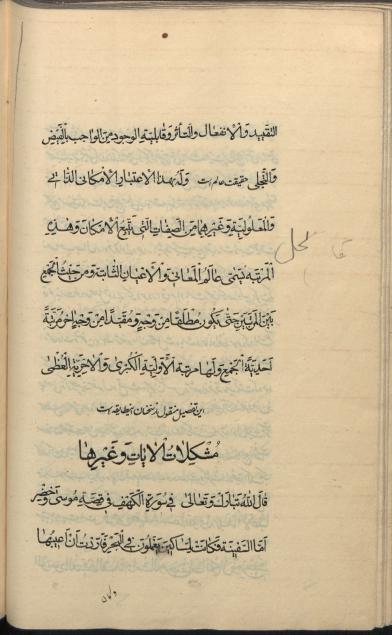 التقييد والانفعال والتأثر وقابلية الوجود من الواجب بالفيض
والتجلى حقيقت عالم است وله بهذا الاعتبار الامكان الذاتى
والمعلولية وغيرها من الصفات التى تتبع الامكان وهذه
المرتبة تسمى عالم المعانى والاعيان الثابتة ومن حيث الجمع
بين المرتبتين حتى تكون مطلقا من وجه ومقيدا من وجه اخر مرتبة
احدية الجمع ولها مرتبة الاولية الكبرى والاخرية العظمى
اين تفصيل منقول از سخنان
مشكلات الايات وغيرها
قال الله تبارك وتعالى فى سورة الكهف فى قصة موسى وخضر
اما السفينة فكانت لمساكين يعملون فى البحر فاردت ان اعيبها